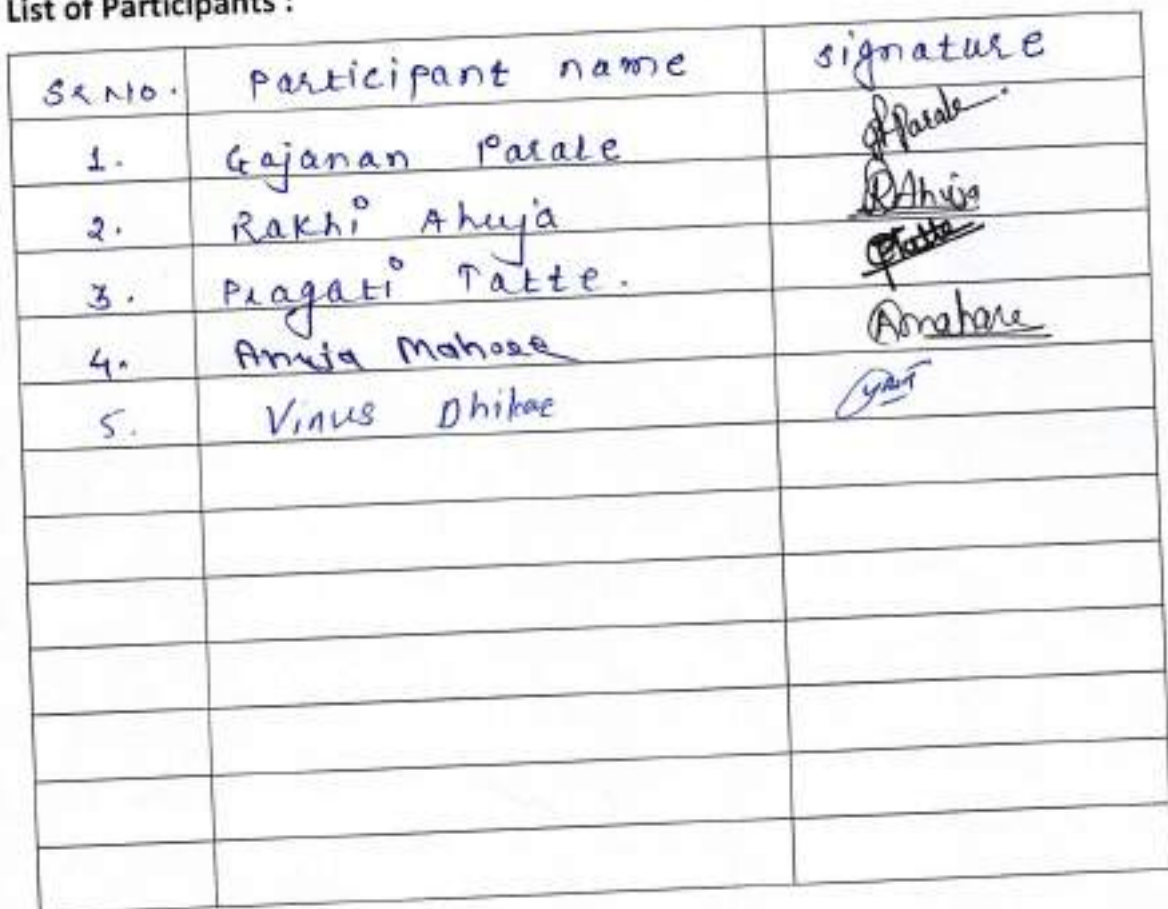 List of Participants :
SR NO. Participant name signature
1. Gajanan Parate GParate
2. Rakhi Ahuja RAhuja
3. Pragati Tatte. PTatte
4. Anuja Mahore Amahare
5. Vinus